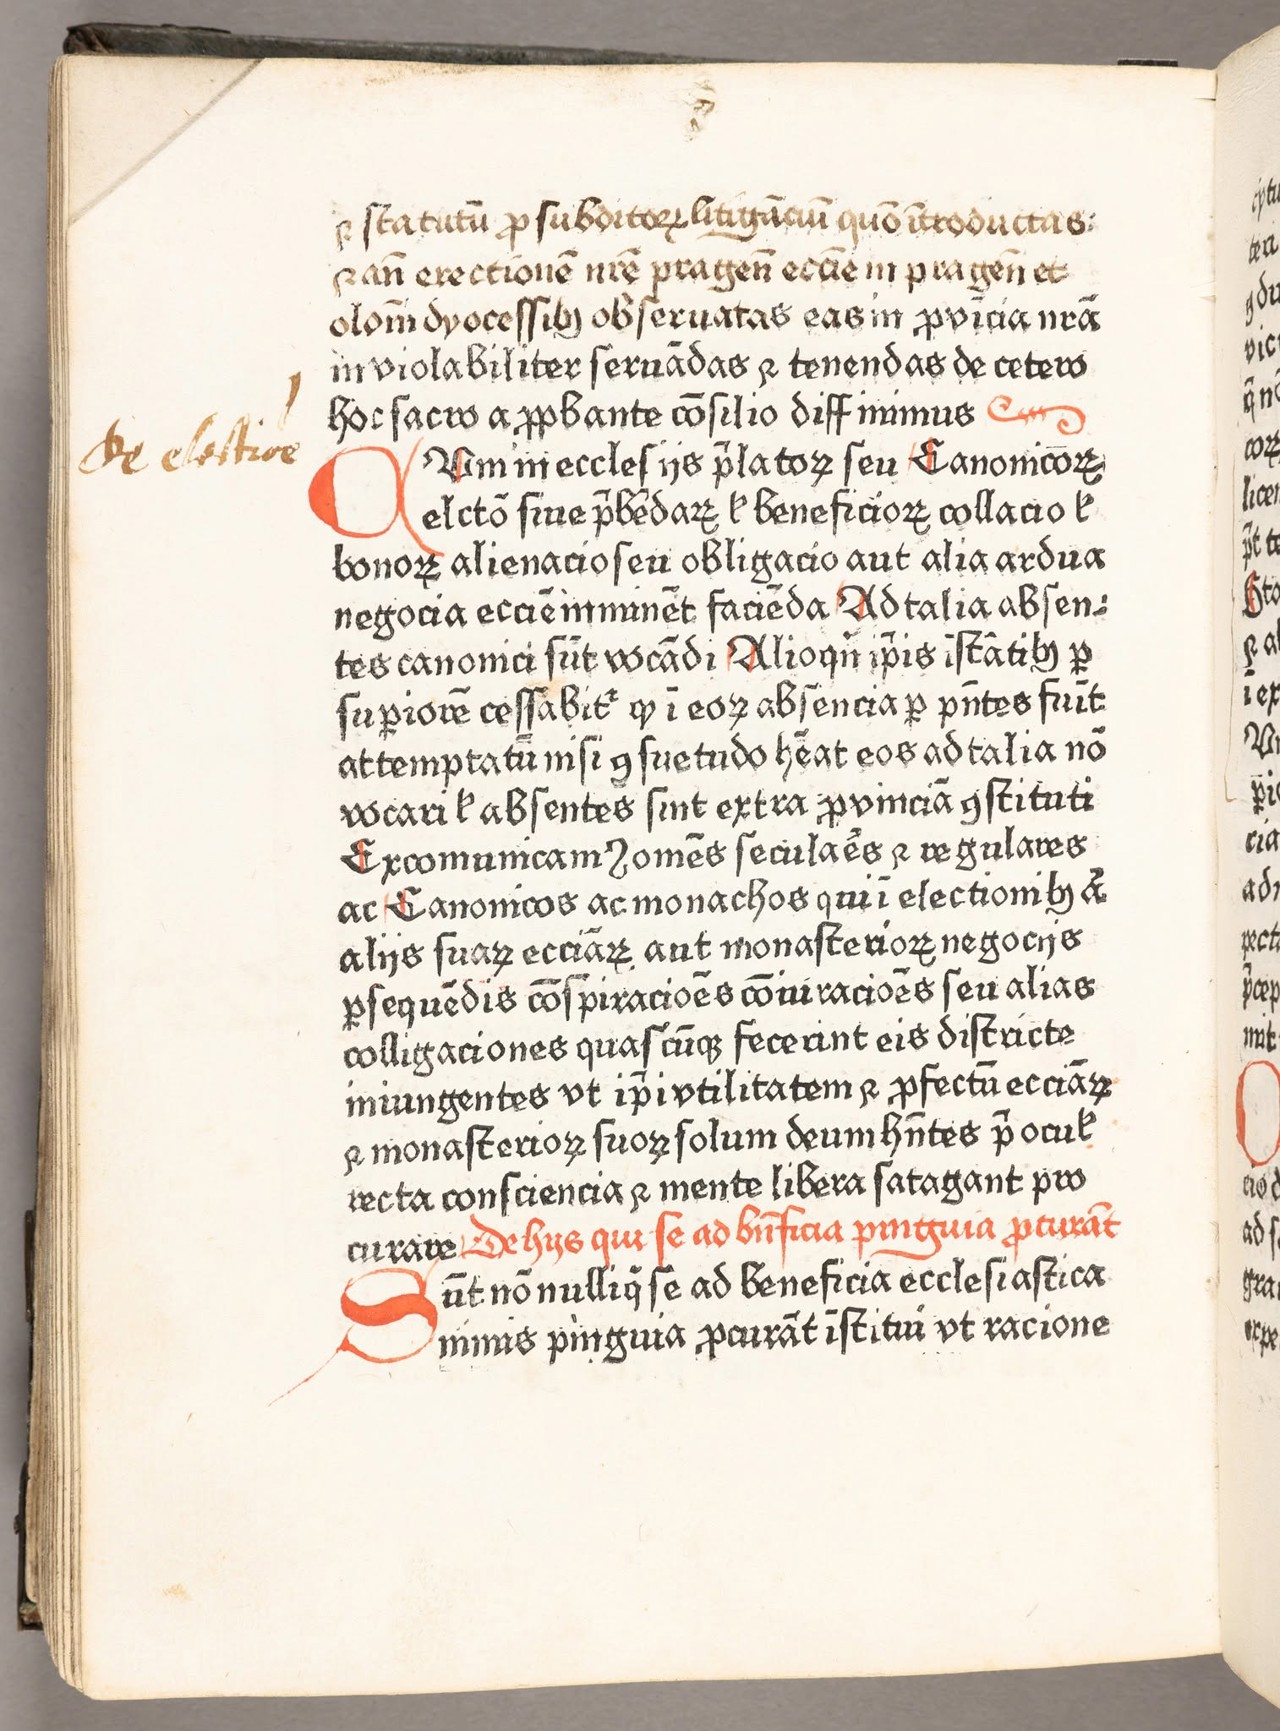 ⁊ statutū ꝓ subditoꝝ litigāciū quō ītroductas:
⁊ añ erectionē nrē pragen̄ eccīe in pragen̄ et
olom̄ dyocessibꝫ obseruatas eas in ꝓvīcia nrā
inviolabiliter seruādas ⁊ tenendas de cetero
hoc sacro aꝓpbante cōsilio diffinimus
De electiōe
Cum in ecclesijs p̄latoꝝ seu Canonicoꝝ
elctō siue p̄bēdaꝝ ꝉ beneficioꝝ collacio ꝉ
bonoꝝ alienacio seu obligacio aut alia ardua
negocia eccīe inminēt faciēda Ad talia absen-
tes canonici sūt vocādi Alioqn̄ ip̄is īstātibꝫ ꝑ
suꝑiorē cessabitᷣ qꝫ ī eoꝝ absencia ꝑ pn̄tes fuīt
attemptatū nisi ꝯsuetudo hēat eos ad talia nō
vocari ꝉ absentes sint extra ꝓvinciā ꝯstituti
Excomunicamꝰ om̄es seculaēs ⁊ regulares
ac Canonicos ac monachos qui ī electionibꝫ ā
alijs suaꝝ eccīaꝝ aut monasterioꝝ negocijs
ꝑsequēdis cōspiracioēs cōiuracioēs seu alias
colligaciones quascūqꝫ fecerint eis districte
iniungentes vt ip̄i vtilitatem ⁊ ꝓfectū eccīaꝝ
⁊ monasterioꝝ suoꝝ solum deum hn̄tes p̄ oculꝭ
recta consciencia ⁊ mente libera satagant pro
curare De hijs qui se ad bn̄ficia pinguia ꝓcurāt
Sūt nōnulli q̄ se ad beneficia ecclesiastica
nimis pinguia ꝓcurāt īstitui vt racione